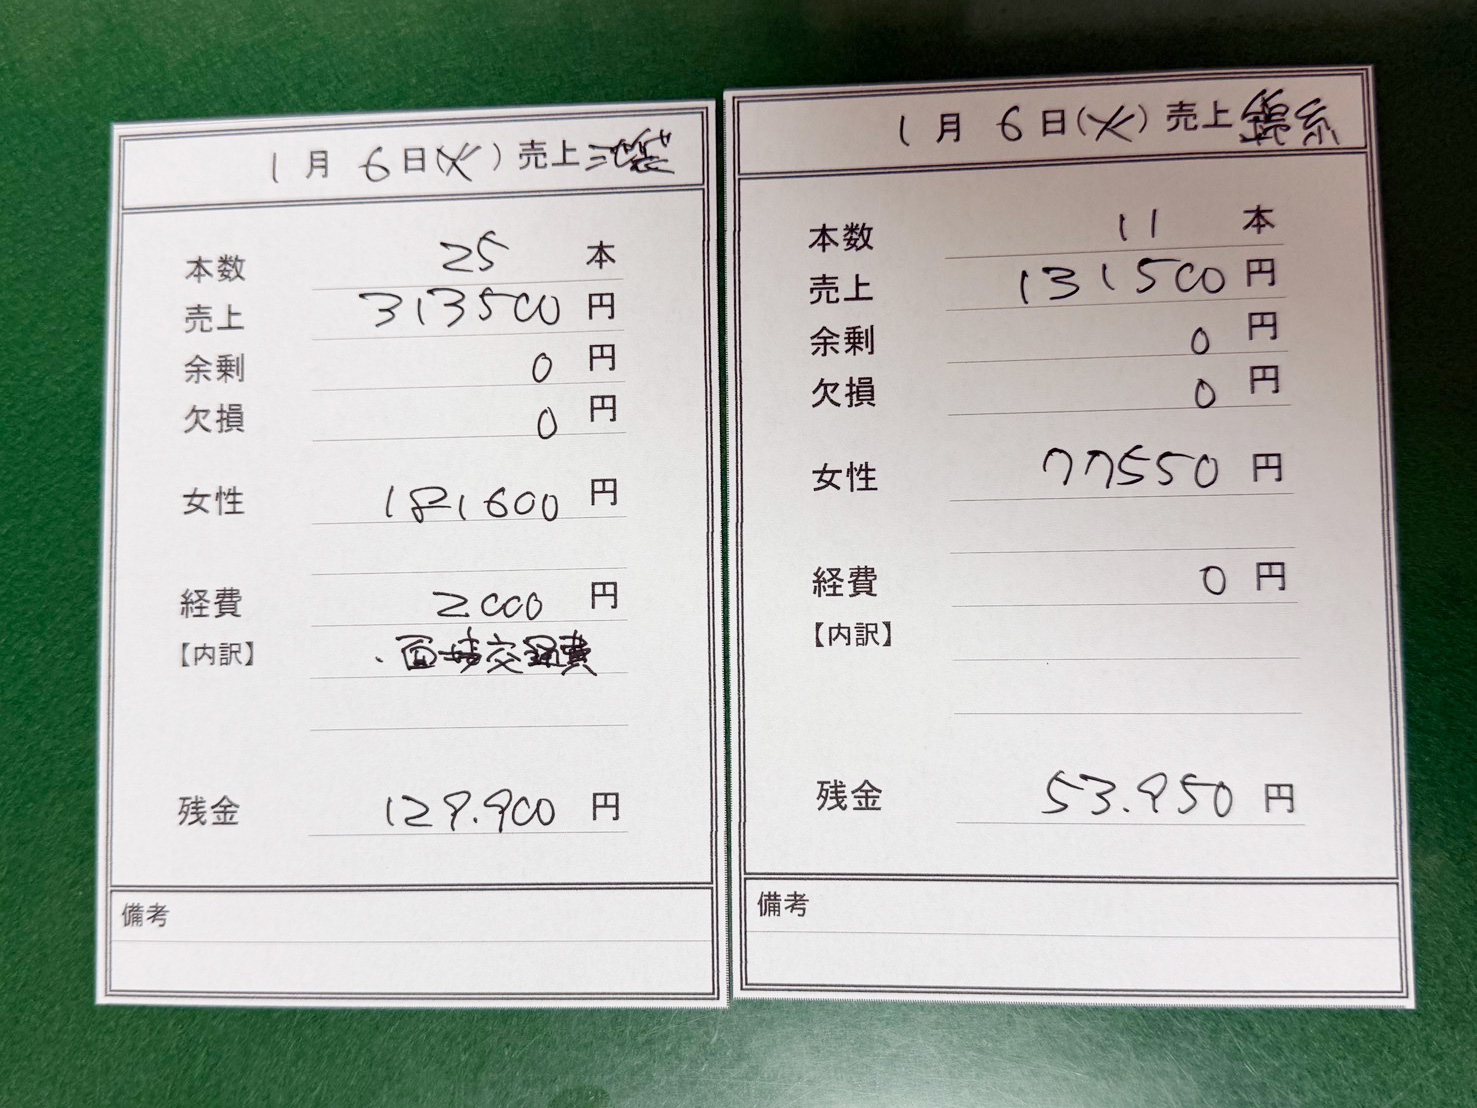 1月 6日(火)売上 池袋
本数 25 本
売上 313500 円
余剰 0 円
欠損 0 円
女性 181600 円
経費 2000 円
【内訳】 ・面接交通費
残金 129.900 円
備考
1月 6日(火)売上 錦糸
本数 11 本
売上 131500 円
余剰 0 円
欠損 0 円
女性 77550 円
経費 0 円
【内訳】
残金 53.950 円
備考